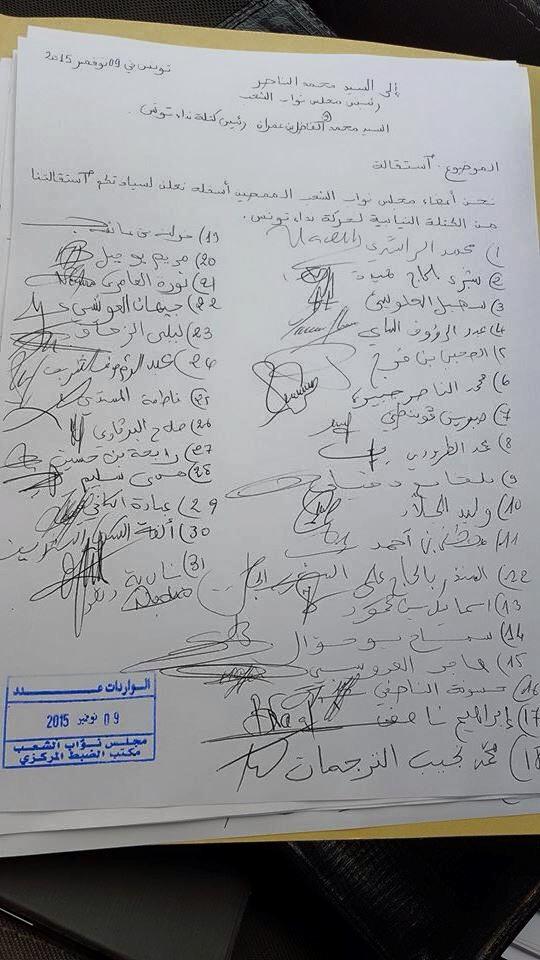 تونس في 09 نوفمبر 2015
إلى السيد محمد الناصر
رئيس مجلس نواب الشعب
و
السيد محمد الفاضل بن عمران رئيس كتلة نداء تونس.
الموضوع: استقالة
نحن أعضاء مجلس نواب الشعب الممضين أسفله نعلن لسيادتكم استقالتنا
من الكتلة النيابية لحركة نداء تونس.
1) محمد الراشدي
2) بشرى بلحاج حميدة
3) سهيل العلويني
4) عبد الرؤوف الماي
5) الصحبي بن فرج
6) محمد الناصر جبيرة
7) صبرين قوبنطيني
8) محمد الطرودي
9) بلقاسم دخيلي
10) وليد جلاد
11) مصطفى بن أحمد
22) المنذر بالحاج علي
13) اسماعيل بن محمود
14) سماح بوحوال
15) هاجر العروسي
16) حسونة الناصفي
17) إبراهيم ناصف
18) محمد نجيب الترجمان
19) خولة بن عائشة
20) مريم بوجبل
21) نورة العامري
22) جيهان العويشي
23) ليلى الزحاف
24) عبد الرؤوف الشريف
25) فاطمة المسدي
26) صلاح البرقاوي
27) رابحة بن حسين
28) هدى سليم
29) عبادة الكافي
30) ألفة السكري الشريف
31) نادية زنقر
الواردات عـــدد
0 9 نوفمبر 2015
مجلس نواب الشعب
مكتب الضبط المركزي